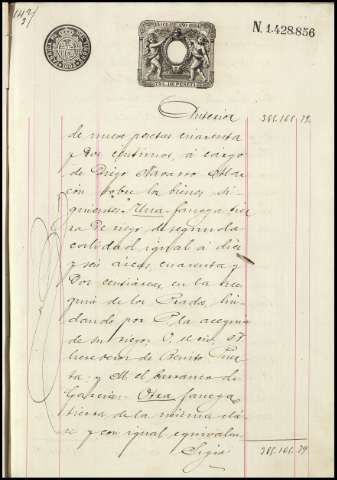 N. 1.428.856
Anterior 366.161.79.
de nueve pesetas cuarenta
y dos centimos, á cargo
de Diego Navarro Alar
cón sobre los bienes si-
guientes: Una fanega tier
ra de riego de segunda
calidad, igual á diez
y seis áreas, cuarenta y
dos centiáreas, en la ace
quia de los Prados, lin-
dando por P. la acequia
de su riego; el rio,
herederos de Benito
y M. el barranco de
Garcia: Otra fanega
tierra de la misma cla
se y con igual equivalen
Sigue 366.161.79